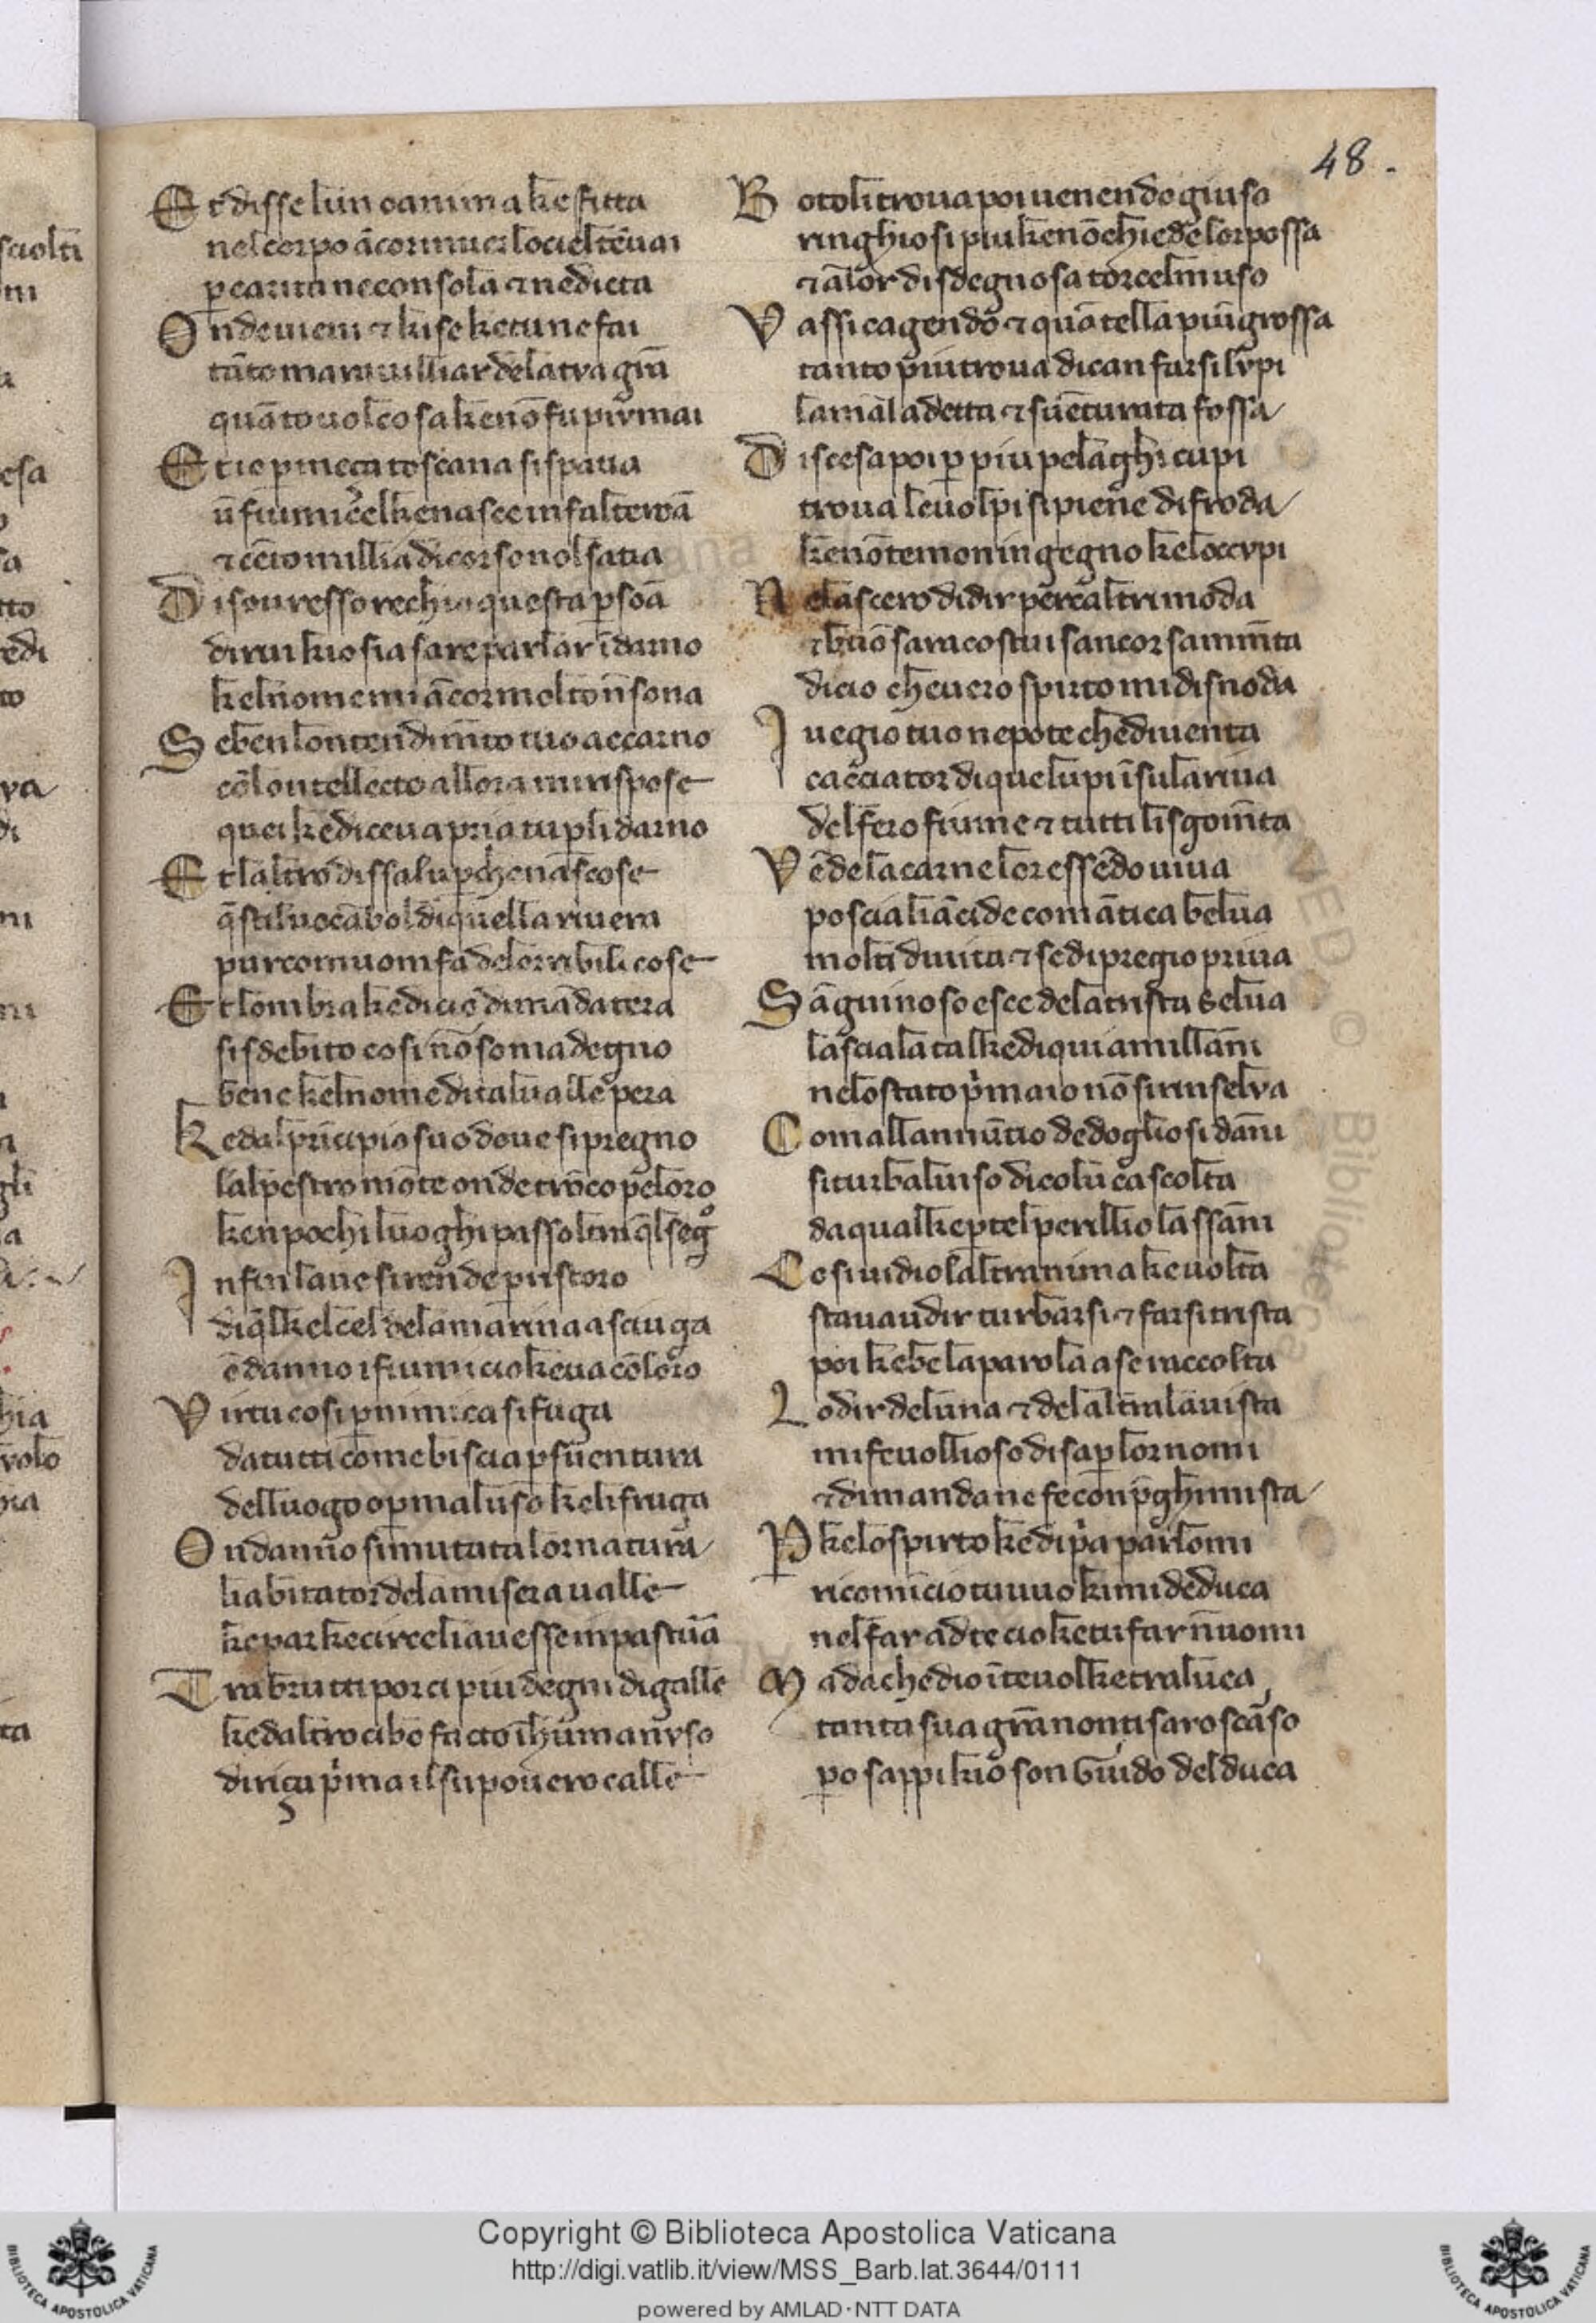 48.
Et disse lun o anima ke fitta
nel corpo ācor inuer lo ciel tēuai
p carita ne consola ⁊ ne dicta
Onde uieni ⁊ ki se ke tu ne fai
tāto marauilliar de la tua grā
quāto uol cosa ke nō fu piu mai
Et io p meça toscana si spatia
ū fiumicel ke nasce in falterōa
⁊ cēto millia di corso nol satia
Di souresso rechio questa psōa
dirui kio sia sare parlar īdarno
kel nome mio ācor molto nō sona
Se ben lontendimīto tuo accarno
cōlo ntellecto allora mi rispose
quei ke diceua pria tu pli darno
Et laltro disse a lui pche nascose
q̄sti l uocabol di quella riuera
pur com uom fa de lorribili cose
Et lombra ke di ciò dimādata era
si sdebito cosi nō so ma degno
bene kel nome di tal ualle pera
Ke dal principio suo doue si pregno
lalpestro mōte onde trōco peloro
ken pochi luoghi passa oltra q̄l segō
Infin la ue si rende p ristoro
di q̄l kel ciel de la marina asciuga
ōdanno i fiumi cio ke ua cō loro
Virtu cosi p inimica si fuga
da tutti come biscia p suentura
dell uogo o p mal uso ke li fruga
Ondanno si mutata lor natura
li abitator de la misera ualle
ke par ke circe li auesse in pastura
Tra brutti porci piu degni di galle
ke daltro cibo facto ī humanuso
diriça pma il su pouero calle
Botoli troua poi uenendo giuso
ringhiosi piu ke nō chiede lor possa
⁊ a lor disdegnosa torcel muso
Vassi cagendo ⁊ quātella piu grossa
tanto piu troua di can farsi lupi
la maladetta ⁊ suēturata fossa
Discesa poi p piu pelaghi cupi
troua le uolpi si piene di froda
ke nō temon ingegno kel occupi
Ne lascero di dir percaltri moda
⁊ buō sara costui sancor sammēta
di cio che uero spirto mi disnoda
I uegio tuo nepote che diuenta
cacciator di que lupi ī su la riua
del fero fiume ⁊ tutti li sgomēta
Vēde la carne lor essēdo uiua
poscia li ācide com ātica belua
molti di uita ⁊ se di pregio priua
Sāguinoso esce de la trista selua
lasciala tal ke di qui a mill ani
ne lo stato pmaio nō si rinselva
Com all annūtio de dogliosi dāni
si turbal uiso di colui cascolta
da qual ke pte l perillio lassāni
Cosi uidio laltranima ke uolta
staua udir turbarsi ⁊ farsi trista
poi kebe la parola a se raccolta
Lo dir de luna ⁊ de laltra la uista
mi fe uollioso di sap lor nomi
⁊ dimanda ne fe con pghi mista
P ke lo spirto ke di pa parlomi
ricomicio tu uuo ki mi deduca
nel far ad te cio ke tu far nūomi
Ma da che dio ī te uol ke traluca
tanta sua grā non ti saro scaso
po sappi kio son Guido del duca